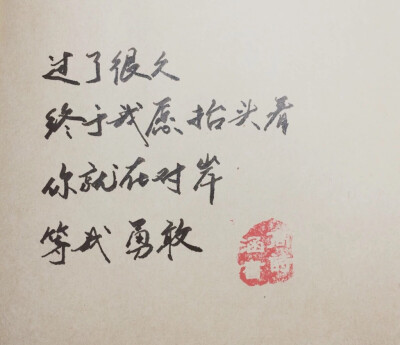 过了很久
终于我愿抬头看
你就在对岸
等我勇敢